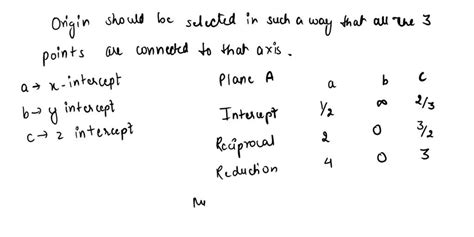 Origin should be selected in such a way that all the 3
points are connected to that axis.
a → x-intercept
b → y intercept
c → z intercept
Plane A a b c
Intercept 1/2 ∞ 2/3
Reciprocal 2 0 3/2
Reduction 4 0 3